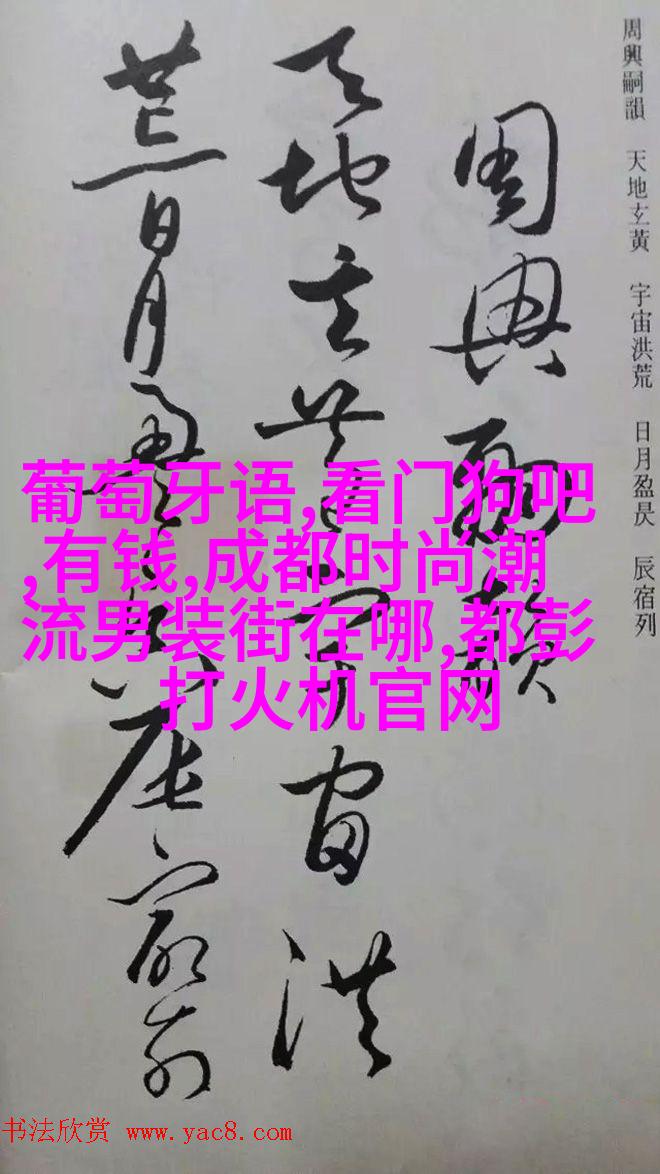 周興嗣韻 天地玄黃 宇宙洪荒 日月盈昃 辰宿列
周興嗣韻
天地玄黃宇宙洪
荒日月盈昃辰宿列
葡萄牙语,看门狗吧
,有钱,成都时尚潮
流男装街在哪,都彭
打火机官网
书法欣赏 www.yac8.com